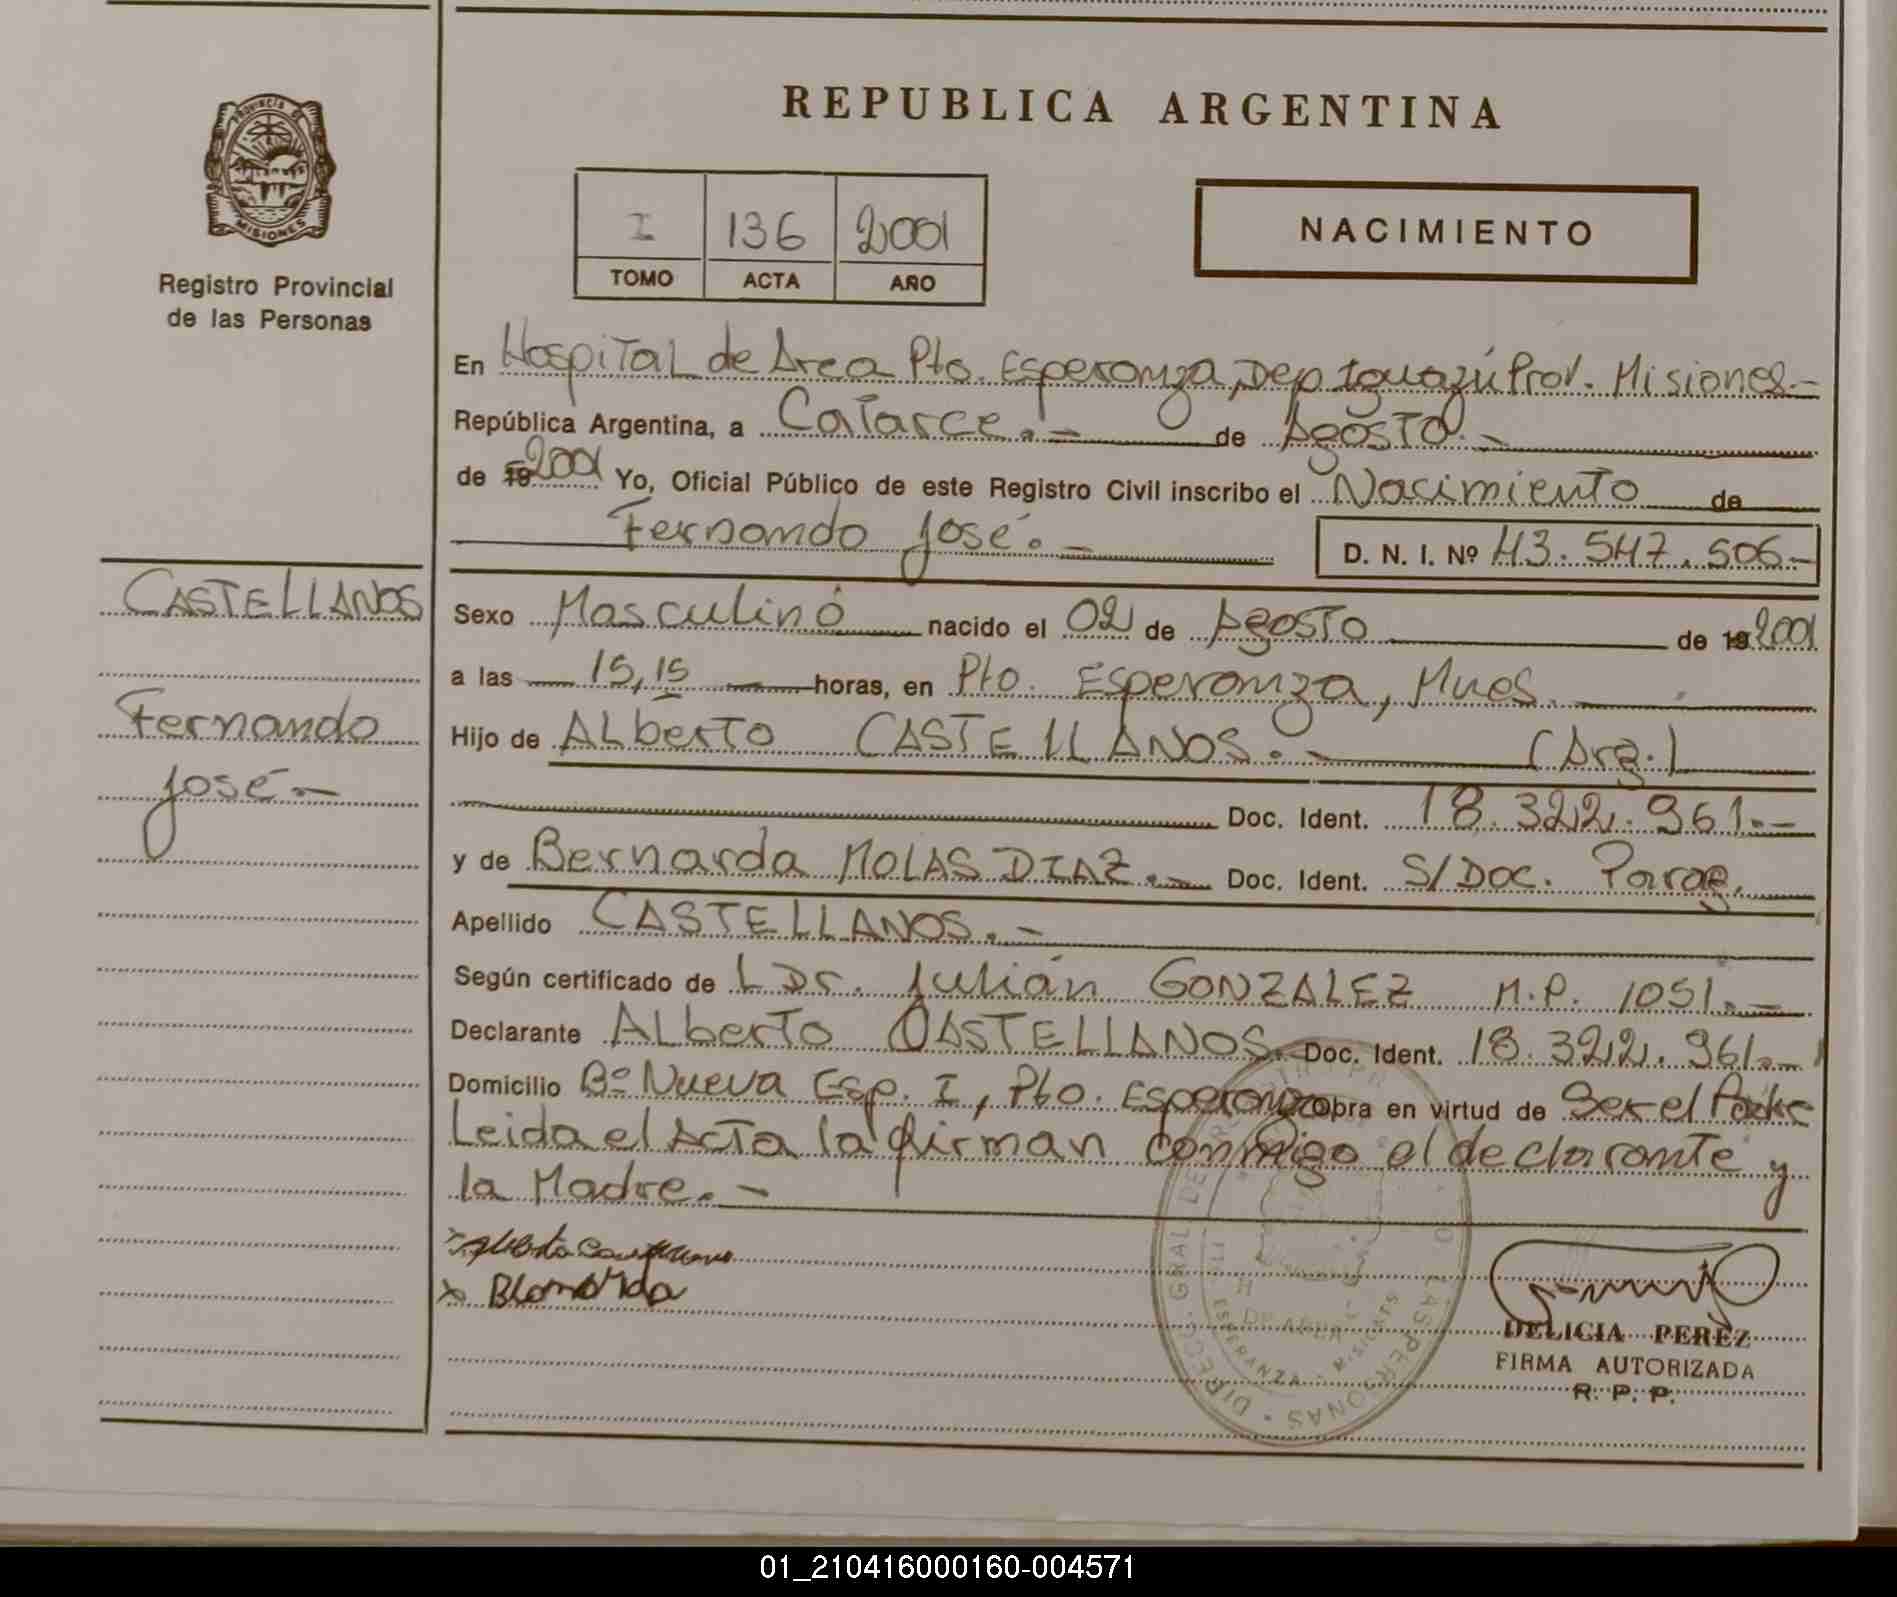 REPUBLICA ARGENTINA
PROVINCIA DE
MISIONES
Registro Provincial
de las Personas
I 136 2001
TOMO ACTA AÑO
NACIMIENTO
En Hospital de Area Pto. Esperanza, Dep Iguazú Prov. Misiones.-
República Argentina, a Catorce.- de Agosto.-
de 19 2001 Yo, Oficial Público de este Registro Civil inscribo el Nacimiento de
Fernando José.- D. N. I. Nº 43.547.506-
CASTELLANOS
Fernando
José.-
Sexo Masculino nacido el 02 de Agosto de 19 2001
a las 15,15 horas, en Pto. Esperanza, Mnes.
Hijo de Alberto CASTELLANOS.- (Arg.)
Doc. Ident. 18.322.961.-
y de Bernarda MOLAS DIAZ.- Doc. Ident. S/Doc. Parag.
Apellido CASTELLANOS.-
Según certificado de L Dr. Julián GONZALEZ M.P. 1051.-
Declarante Alberto CASTELLANOS. Doc. Ident. 18.322.961.-
Domicilio Bº Nueva Esp. I, Pto. Esperanza Obra en virtud de Ser el Padre
Leida el Acta la firman conmigo el declarante y
la Madre.-
DELICIA PEREZ
FIRMA AUTORIZADA
R. P. P.
01_210416000160-004571